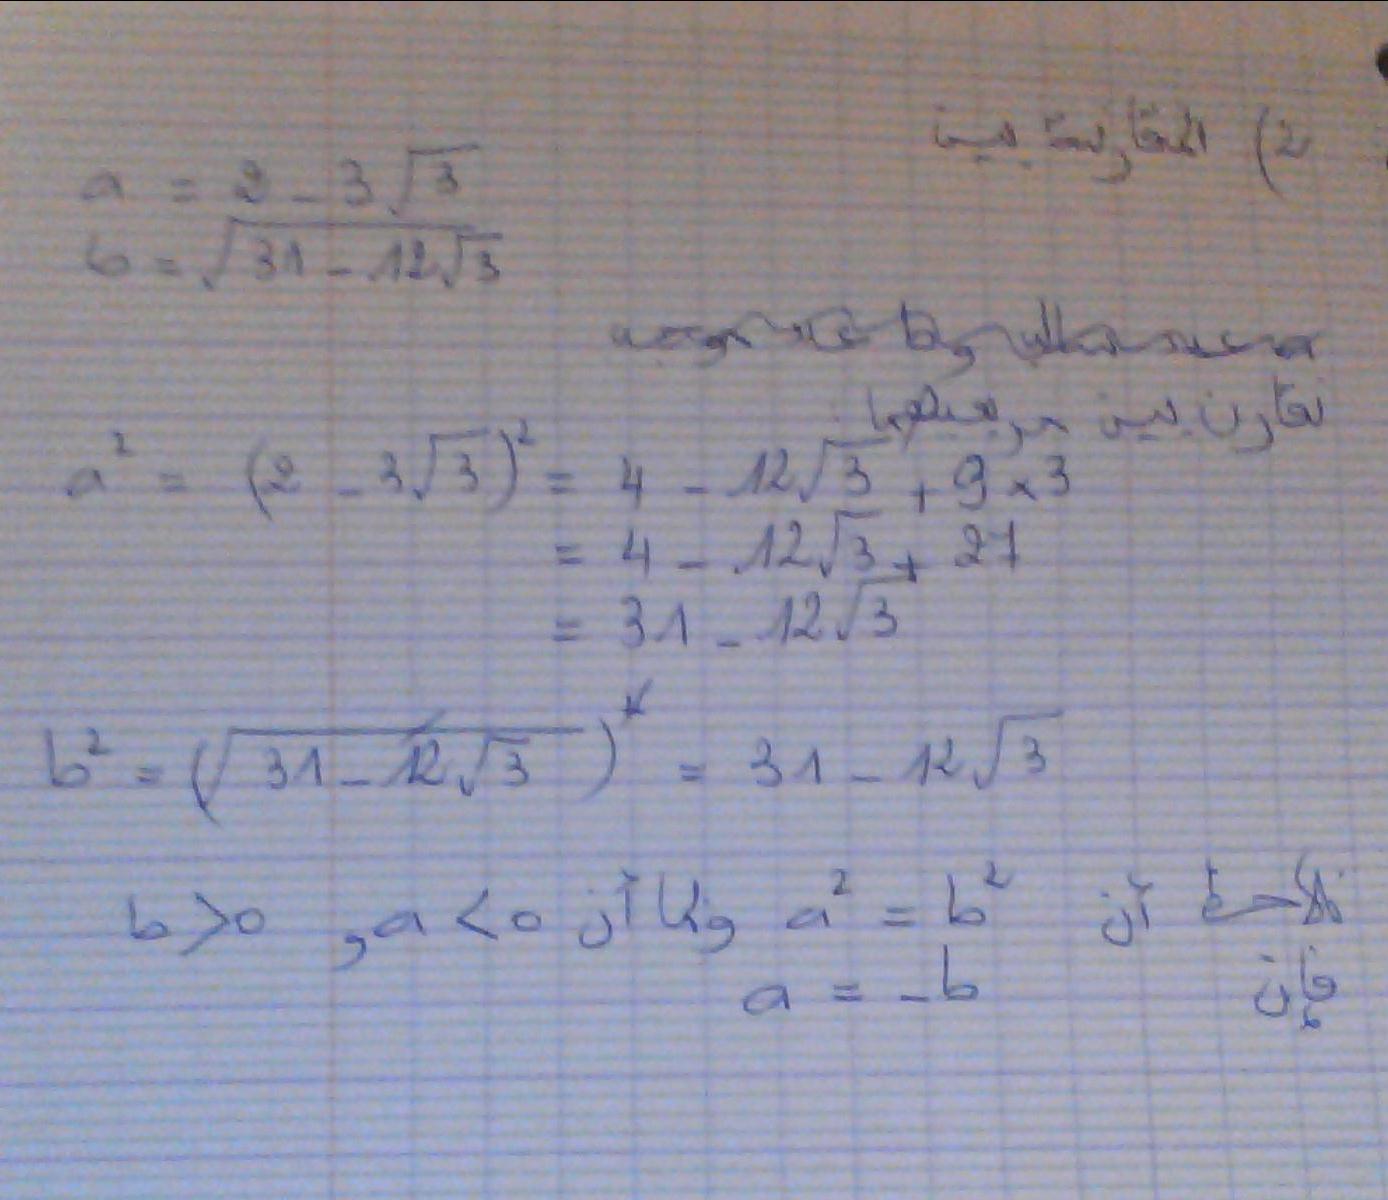 2) المقارنة بين
a = 2 - 3√3
b = √(31 - 12√3)
نقارن بين مربعيهما
a² = (2 - 3√3)² = 4 - 12√3 + 9 × 3
= 4 - 12√3 + 27
= 31 - 12√3
b² = (√(31 - 12√3))² = 31 - 12√3
نلاحظ أن a² = b² وبما أن a < 0 و b > 0
فإن a = -b